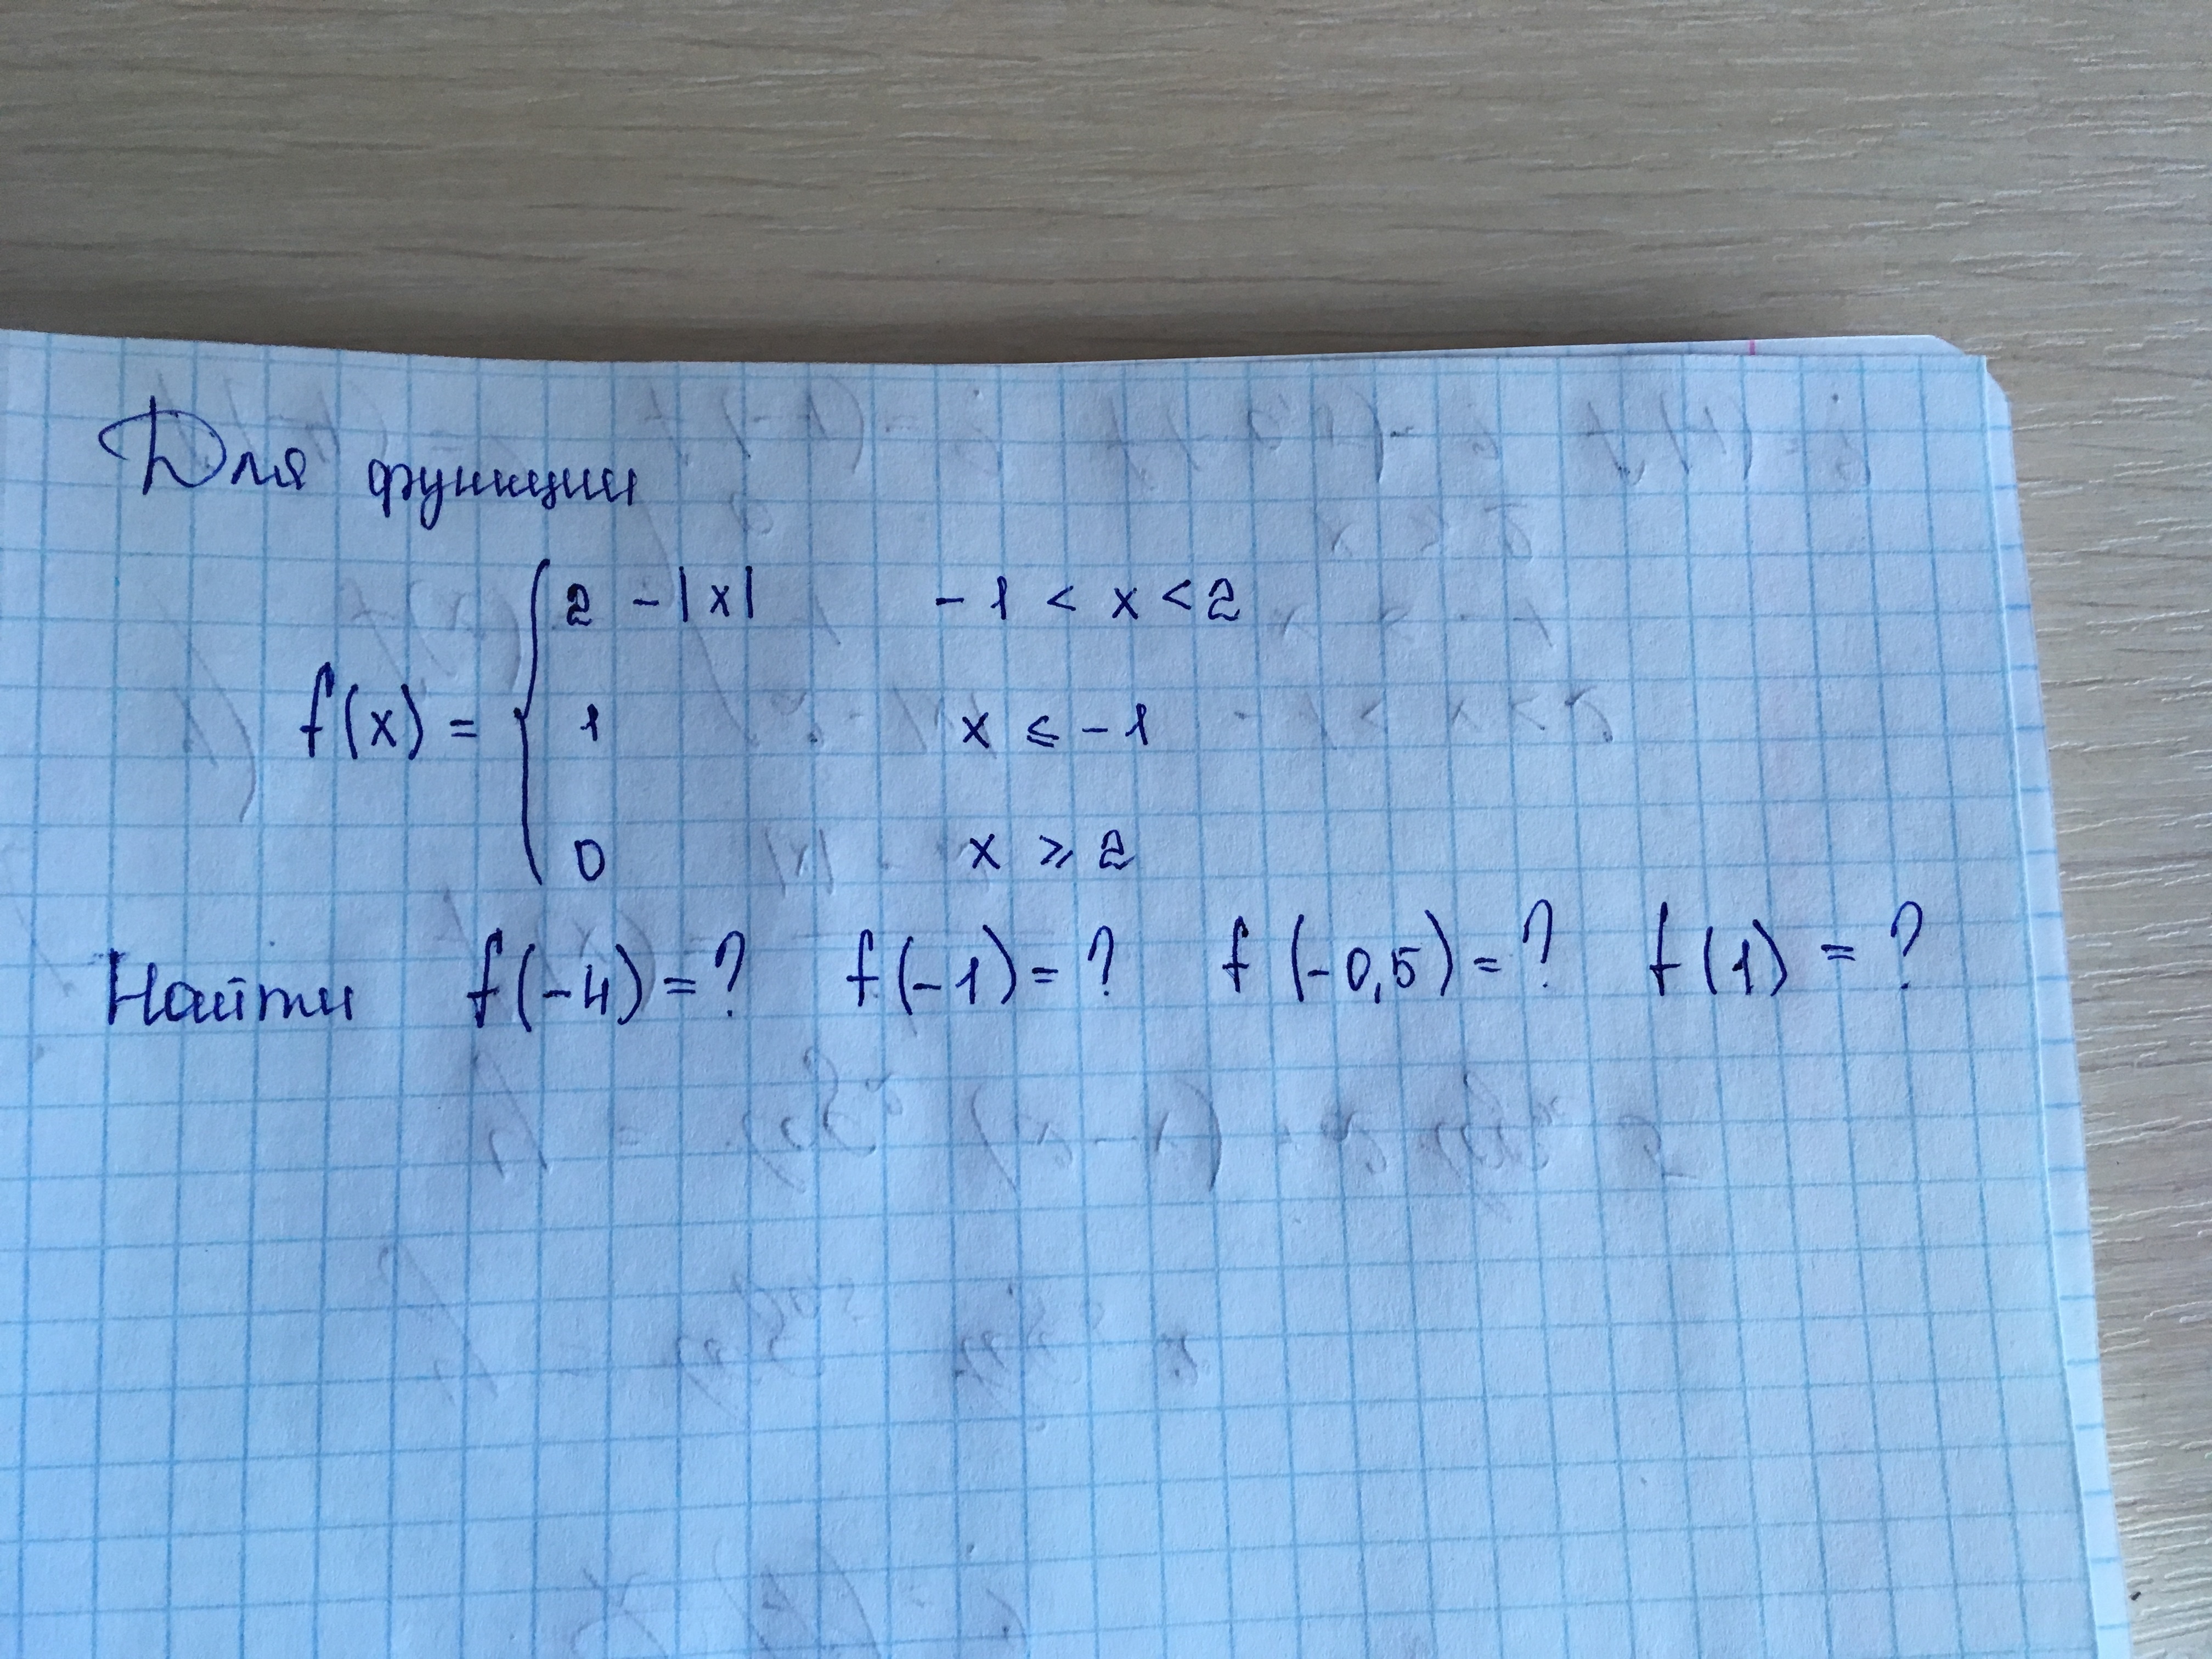 Для функции
f(x) = { 2 - |x|   -1 < x < 2
1   x ⩽ -1
0   x ⩾ 2
Найти f(-4) = ? f(-1) = ? f(-0,5) = ? f(1) = ?